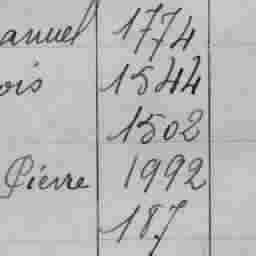 anuel 1774
ois 1544
1502
Pierre 1992
187